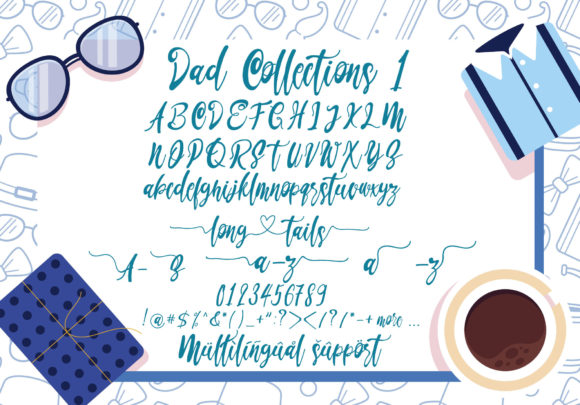 Dad Collections 1
ABCDEFGHIJKLM
NOPQRSTUVWXYZ
abcdefghijklmnopqrstuvwxyz
long tails
A-Z a-z a -z
0123456789
!@#$%^&*()_+":?><//?/*-+ more ...
Mültilingüäl süppört